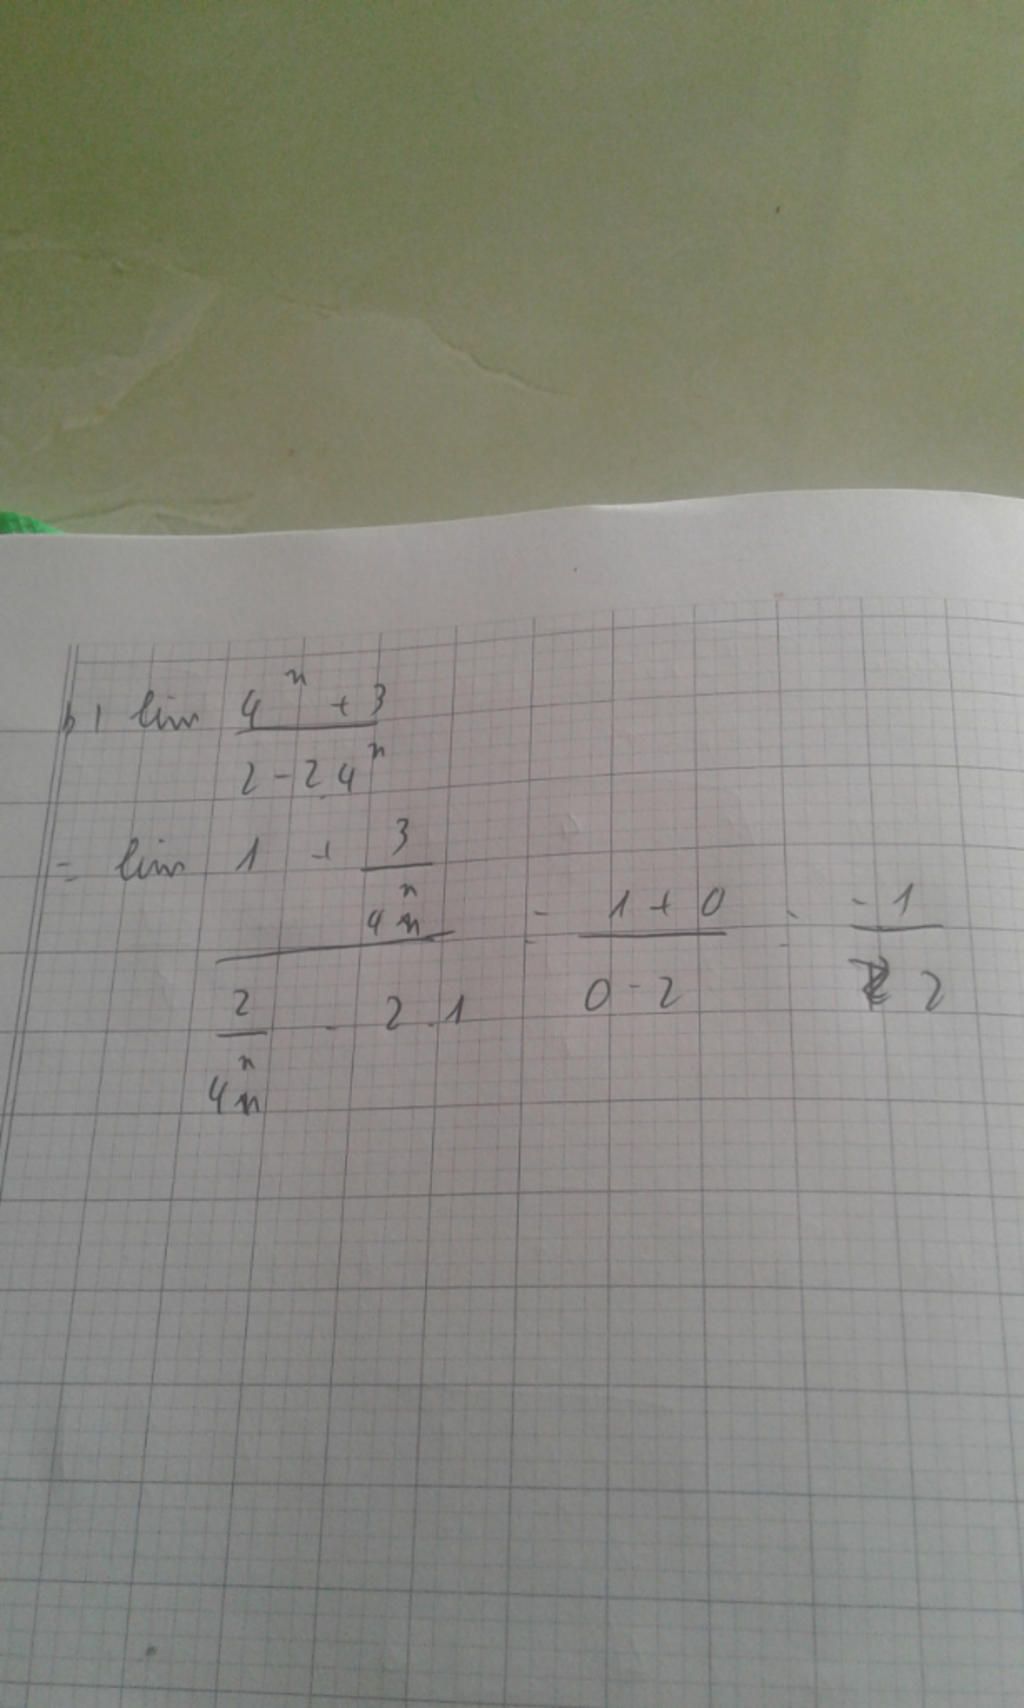 b) lim 4^n + 3 / 2 - 2.4^n
= lim 1 + 3/4^n / 2/4^n - 2.1 = 1 + 0 / 0 - 2 = -1 / 2